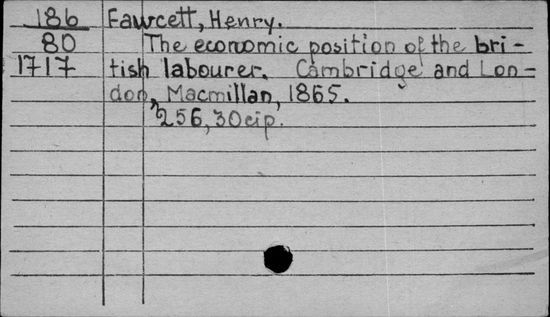 186 Fawcett, Henry.
80 The economic position of the bri-
1717 tish labourer. Cambridge and Lon-
don, Macmillan, 1865.
256, 30 p.